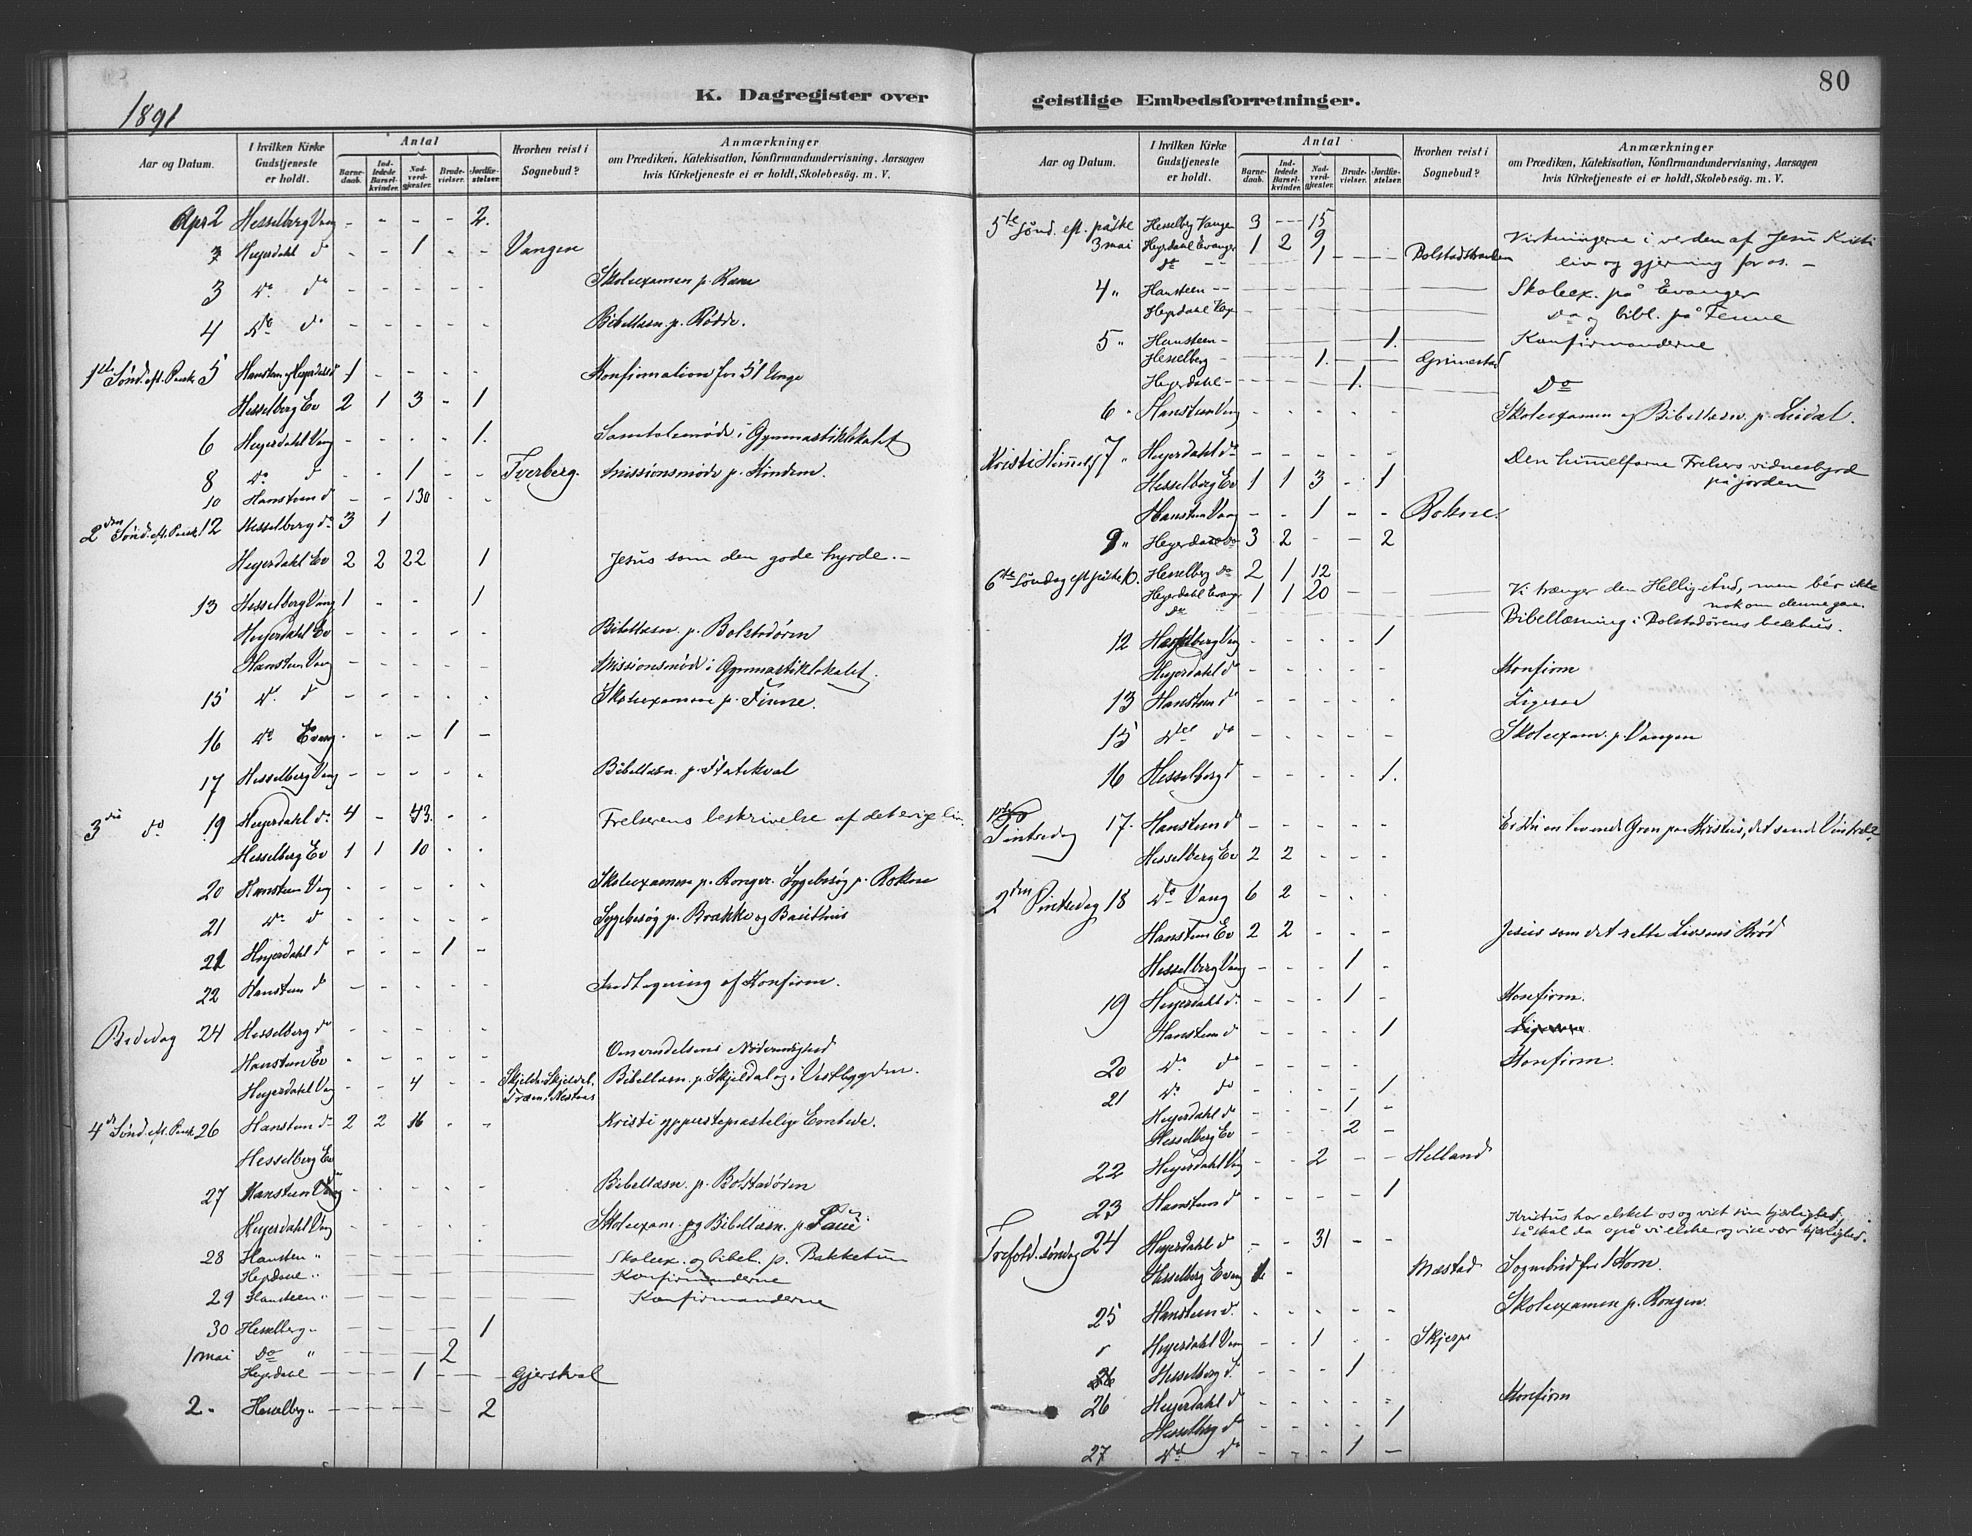 80
K. Dagregister over geistlige Embedsforretninger.
1891
Aar og Datum.
I hvilken Kirke Gudstjeneste er holdt.
Antal
Barnedaab.
Indledede Barselkvinder.
Nadverdgjester.
Brudevielser.
Jordfæstelser.
Hvorhen reist i Sognebud?
Anmærkninger
om Prædiken, Katekisation, Konfirmandundervisning, Aarsagen
hvis Kirketjeneste ei er holdt, Skolebesøg. m. V.
Apr 2 Hesselberg Vang - - - - 2.
3 Heyerdahl do - - 1 - - Vangen
3 do do - - - - - Skoleexamen p. Rene
4 do do - - - - - Bibellæsn p. Rødde.
1ste Sønd. eft. Paask 5 Hansteen og Heyerdahl 1 - - - - Konfirmation for 51 Unge
Hesselberg Ev 2 1 3 - 1
6 Heyerdahl Vang - - - - 1. Samtalemøde i Gymnastiklokalet
8 do do - - 1 - - Tverberg. Missionsmøde p. Kindem.
10 Hansteen do - - 130 - -
2den Sønd. eft. Paask 12 Hesselberg do 3 1
Heyerdahl Ev 2 2 22 1 Jesus som den gode hyrde. -
13 Hesselberg Vang 1 - - - 1
Heyerdahl Ev - - - - - Bibellæsn. p. Bolstadøren
Hansteen Vang - - - - - Missionsmøde i Gymnastiklokalet.
15 do do - - - - - Skoleexamen p. Finne.
16 do Evang - - - 1 -
17 Hesselberg Vang - - - - - Bibellæsn. p.
3die do 19 Heyerdahl do 4 - 43. - - Frelserens beskrivelse af det evige liv.
Hesselberg Ev 1 1 10 - -
20 Hansteen Vang - - - - - Skoleexamen p. Rongve. Sygebesøg p. Rokne
21 do do - - - - - Sygebesøg p. Brække og
21 Heyerdahl do - - - 1 -
22 Hansteen do - - - - - Indtegning af Konfirm.
Bededag 24 Hesselberg do - - - - -
Hansteen Ev - - - - - Omvendelsens Nødvendighed
Heyerdahl Vang - - 4 - - Bibellæsn. p. Skjeldal og i Vestbygden.
4de Sønd. eft. Paask 26 Hansteen do 2 2 16 - - Kristi ypperstepræstelige Embede.
Hesselberg Ev
27 Hansteen Vang - - - - - Bibellæsn. p. Bolstadøren
Heyerdahl Vang - - - - - Skoleexam. og Bibellæsn. p.
28 Hansten " Skoleex. og bibel. p. Bakketun
Heyerdahl " Konfirmanderne
29 Hansteen " Konfirmanderne
30 Hesselberg " 1
1 mai do " 2
Heyerdahl 1 Gjerskval
2 " Hesselberg " 2
Aar og Datum.
I hvilken Kirke Gudstjeneste er holdt.
Antal
Barnedaab.
Indledede Barselkvinder.
Nadverdgjester.
Brudevielser.
Jordfæstelser.
Hvorhen reist i Sognebud?
Anmærkninger
om Prædiken, Katekisation, Konfirmandundervisning, Aarsagen
hvis Kirketjeneste ei er holdt, Skolebesøg. m. V.
5te Sønd. eft. påske Hesselberg Vangen 3 - - 15
3 mai Heyerdahl Evanger 1 2 9 - - Virkningerne i verden af Jesu Kristi
do - - 1 - - liv og gjerning for os. -
4 " Hansteen - - Skoleex. på Evanger
Heyerdahl do og bibl. på Fenne
5 " Hansteen - 1. Konfirmanderne
Hesselberg - 1. Grimestad
Heyerdahl - 1. Do
6 " Hansteen Vang - - - - - Skoleexamen og Bibellæsn. p. Lirdal.
Kristi Himmelf 7 " Heyerdahl do Den himmelfarne Frelsers vidnesbyrd
på jorden
Hesselberg Ev 1 1 3 - 1
Hansteen Vang - - 1 - - Rokne.
9 " Heyerdahl do 3 2 - - 2
6te søndag eft påske 10. Hesselberg do 2 1 12
Heyerdahl Evanger 1 1 20 - - Vi trænger den Hellig ånd, men bér ikke
nok om denne gave.
do Bibellæsning i Bolstadørens bedehus.
12 Hesselberg Vang - - - - 1
Heyerdahl do - - - - - Konfirm
13 Hansteen do - - - - - Ligesaa
15 do do - - - - - Skoleexam. p. Vangen
16 Hesselberg do - - - - 1.
1ste Pintsedag 17. Hansteen do - - - - - Er Du en levende Gren paa Kristus, det sande Vintræ
Hesselberg Ev 2 2 - - -
2den Pintsedag 18 do Vang 6 2 - - -
Hansteen Ev 2 2 - - - Jesus som det rette Livsens Brød
Hesselberg Vang - - - 1 -
19 Heyerdahl do - - - 1 - Konfirm.
Hansteen do - - - - 1
20 do do - - - - - Konfirm.
21 do do - - - - 1
Heyerdahl do - - - 1 -
Hesselberg Ev 2 -
22 Heyerdahl Vang - - 2 - - Helland
23 Hansteen do - - - - 1
Trefold. søndag 24 Heyerdahl do - - 31 - - Kristus har elsket os og vist sin kjærlighed,
så skal da også vi elske og vise vor kjærlighed.
Hesselberg Evang - Mæstad Sognebud for 1 Kom.
25 Hansteen do - - - - - Skoleexamen p. Rongen.
Heyerdahl Vang - - 1 - - Skjerpe
Hesselberg do - - - 1 -
26 Heyerdahl do - - - - - Konfirm
Hesselberg do - - - - 1
27 do do - - - 1 -